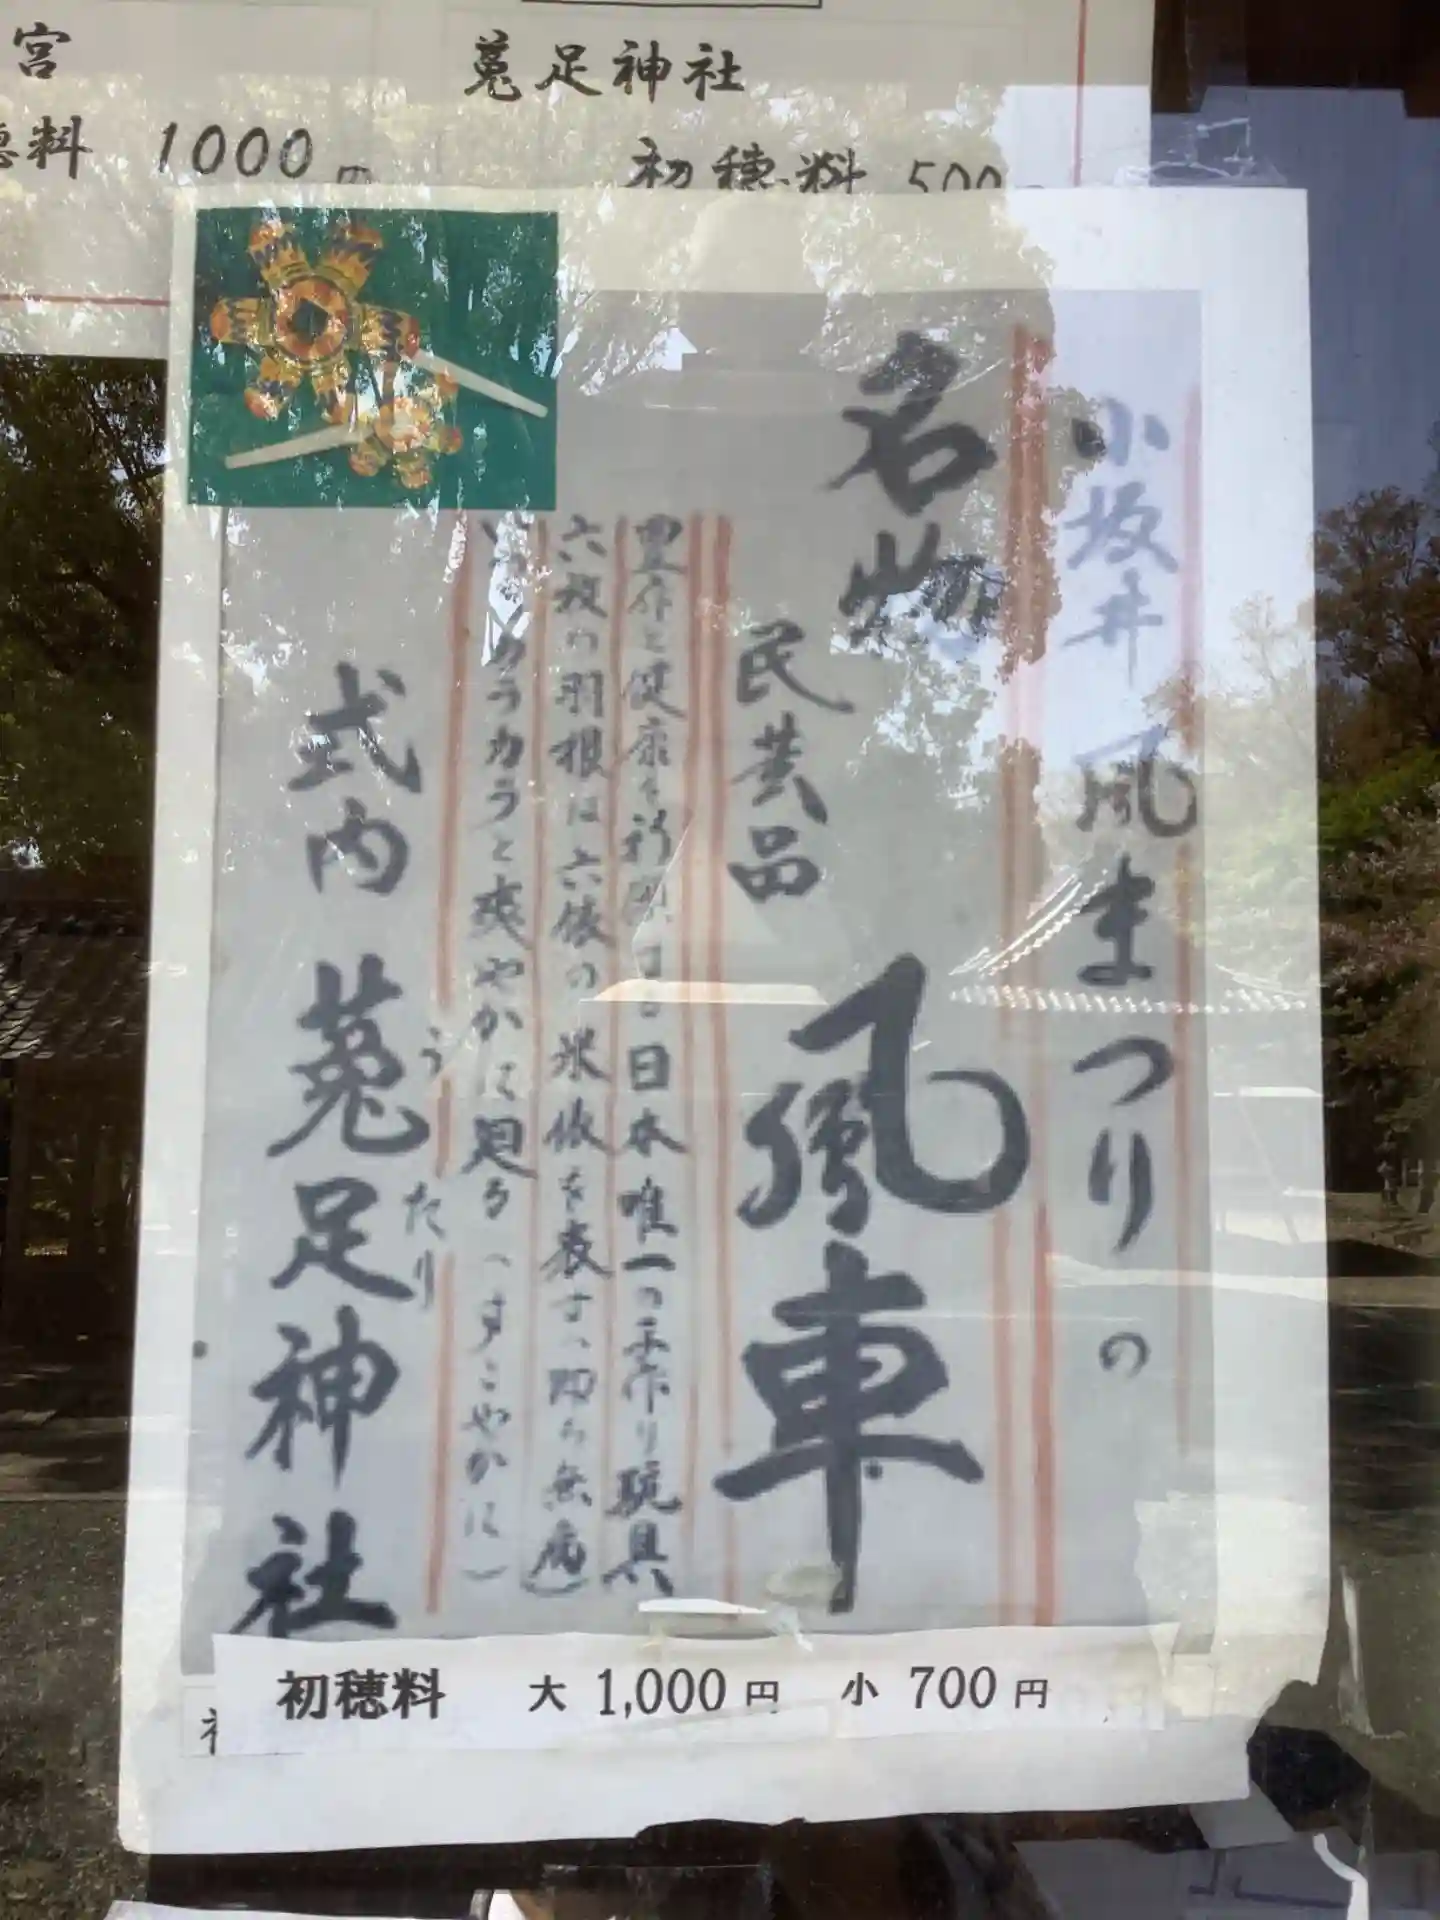 宮
穂料 1000円
菟足神社
初穂料 500
小坂井風まつりの
名物
民芸品
風車
豊作と健康を祈願する日本唯一の手作り玩具
六枚の羽根は六俵の米俵を表す、即ち無病
カラカラと爽やかに廻る(すこやかに)
式内 菟足神社
うたり
初穂料 大 1,000円 小 700円